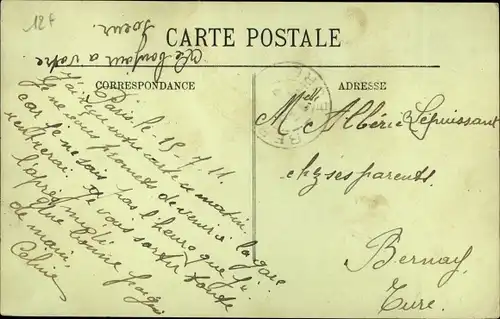 12 f
le bonjour a votre
soeur.
CARTE POSTALE
CORRESPONDANCE
ADRESSE
Paris le 18-7-11
J'ai reçu votre carte ce matin.
Je ne vous promets de venir a la gare
car je ne sais pas l'heure que je
rentrerai. Je vous
l'après midi
Une bonne poignée
de main.
Céline
Melle
Albéric Lepuissant
chez ses parents.
Bernay
Eure.